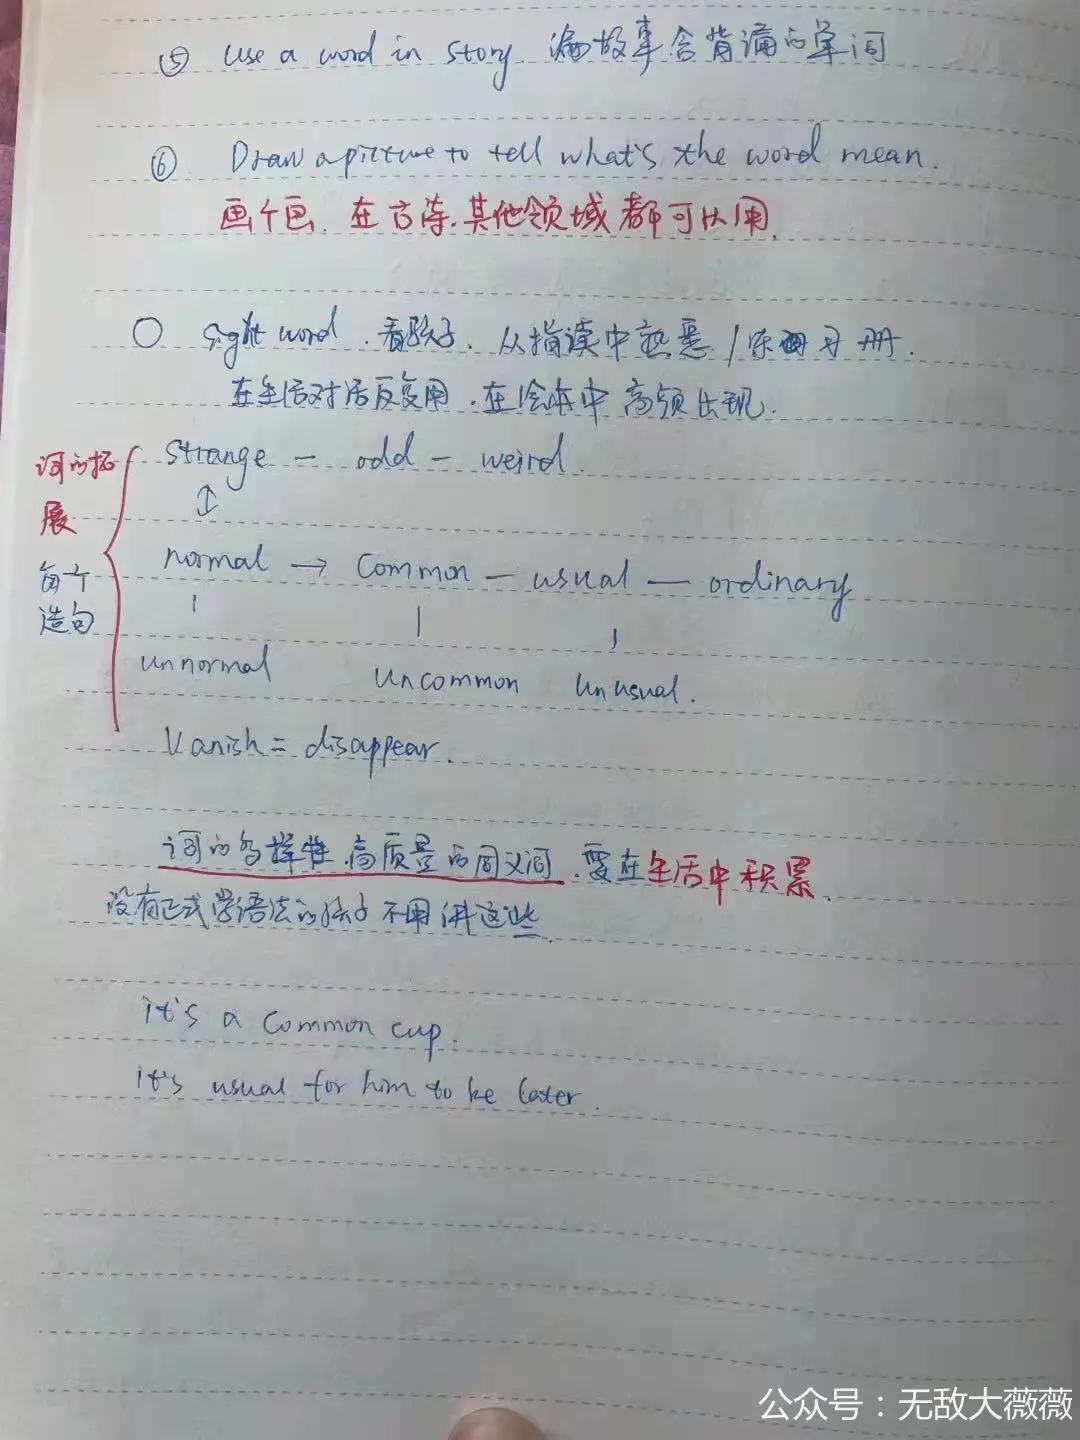 ⑤ Use a word in story 编故事含背诵的单词
⑥ Draw a picture to tell what's the word mean.
画个画、在古诗.其他领域都可以用.
○ sight word.看孩子、从指读中熟悉/练习册.
在生活对话反复用.在绘本中高频出现.
词的拓展
每个造句
strange - odd - weird.
↕
normal → Common - usual - ordinary
unnormal uncommon unusual.
Vanish = disappear.
词的多样性.高质量的同义词.要在生活中积累.
没有正式学语法的孩子不用讲这些.
it's a common cup.
it's usual for him to be later.
公众号:无敌大薇薇